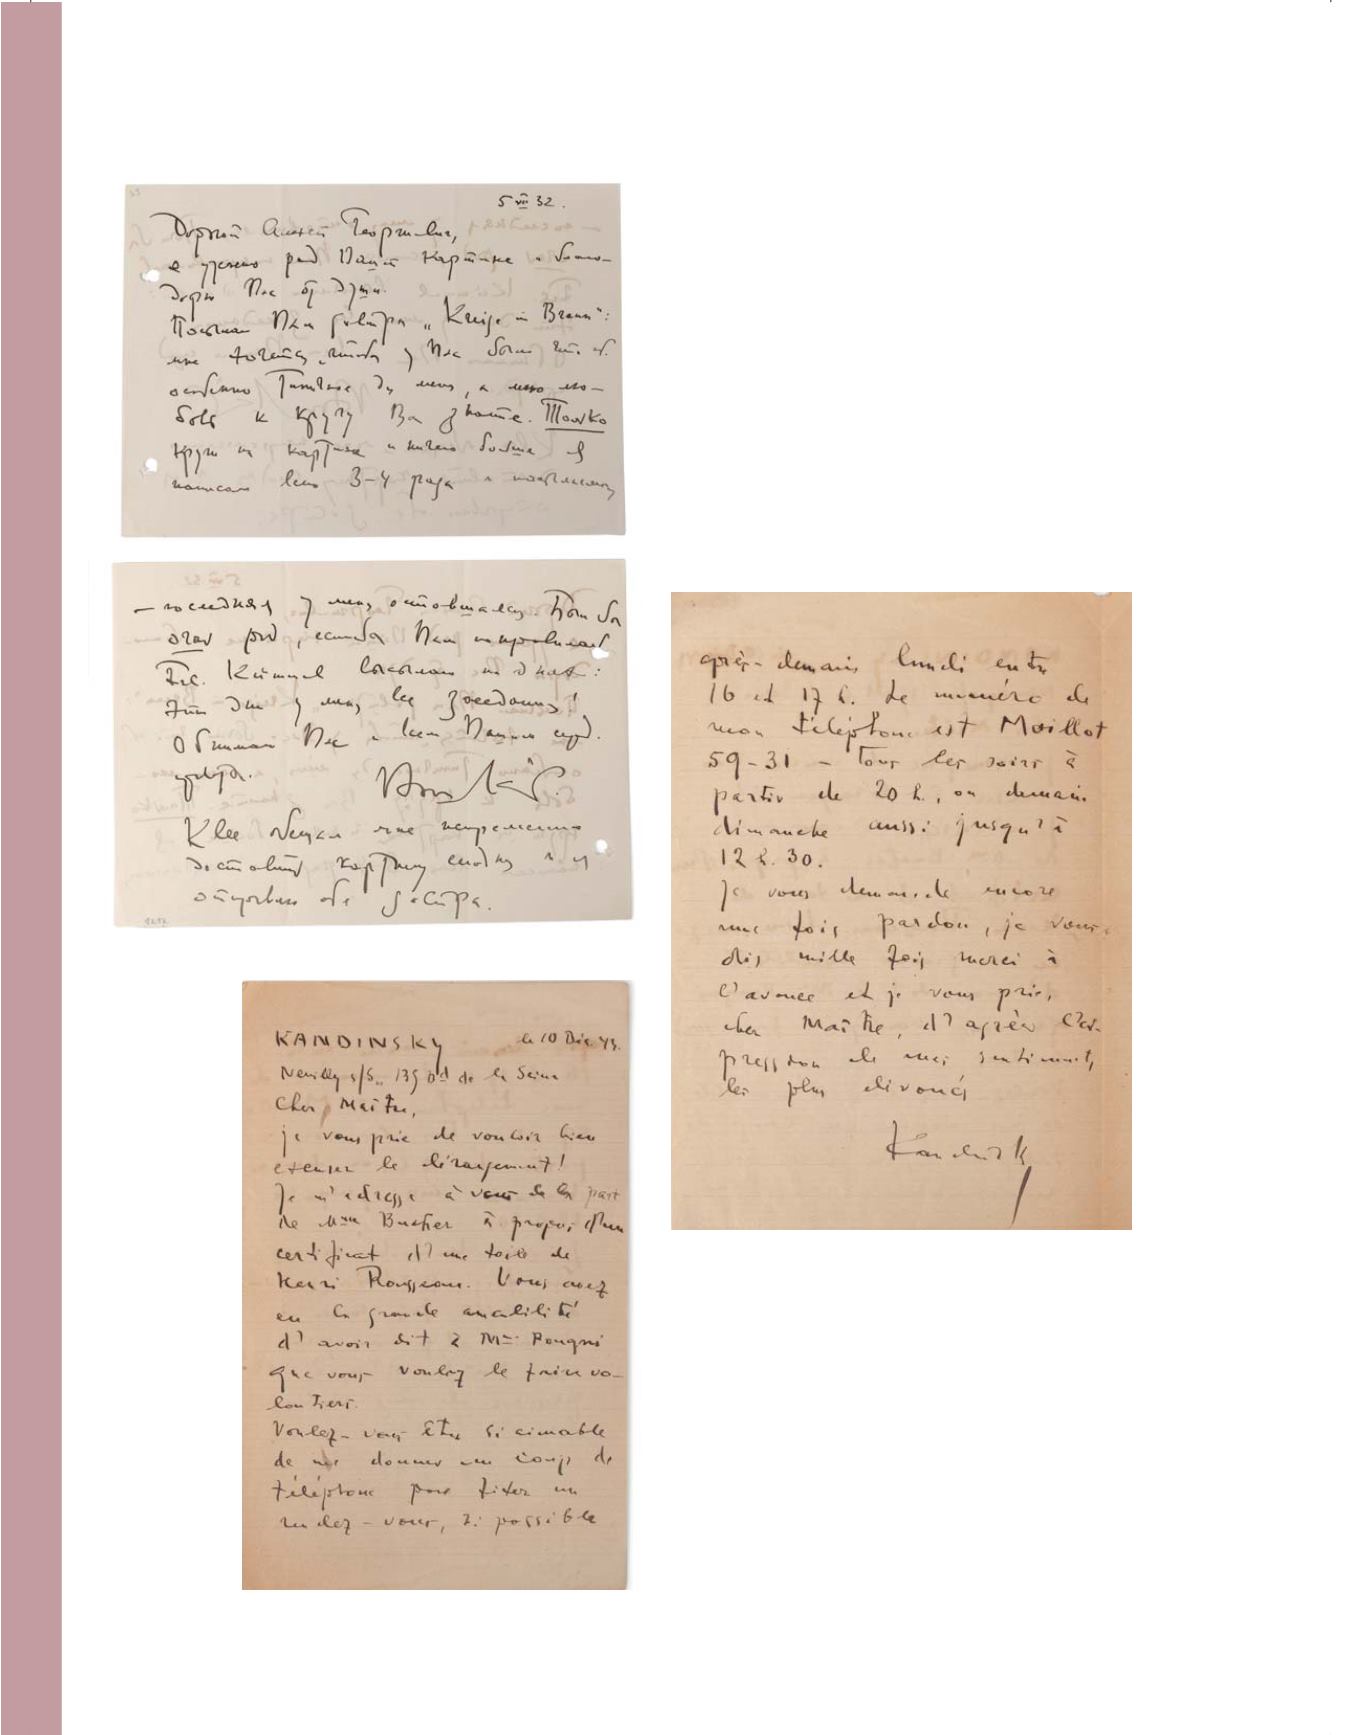 5 VII 32.
Дорогой Алексей Георгиевич,
я ужасно рад Вашей картинке и благо-
дарю Вас от души.
Посылаю Вам завтра „Kreise in Braun“:
мне хочется, чтобы у Вас была
особенно типичное для меня, а мою лю-
бовь к кругу Вы знаете. Только
круги на картине и ничего больше я
написал всего 3–4 раза и посылаемая
— последняя у меня оставшаяся. Был бы
очень рад, если бы Вам понравилась
высылаю на днях:
Эти дни у меня все заседания!
Обнимаю Вас и всем Вашим серд.
привет.
Klee обещал мне непременно
доставить картину сегодня и я
отправлю обе завтра.
KANDINSKY le 10 Déc. 43.
Neuilly s/S., 135 Bd de la Seine
Cher Maître,
je vous prie de vouloir bien
excuser le dérangement!
Je m'adresse à vous de la part
de Mme Bucher à propos d'un
certificat d'une toile de
Henri Rousseau. Vous avez
eu la grande amabilité
d'avoir dit à Mme Pougni
que vous voulez le faire vo-
lontiers.
Voulez-vous être si aimable
de me donner un coup de
téléphone pour fixer un
rendez-vous, si possible
après-demain lundi entre
16 et 17 h. Le numéro de
mon téléphone est Maillot
59-31 – tous les soirs à
partir de 20 h., ou demain
dimanche aussi jusqu'à
12 h. 30.
Je vous demande encore
une fois pardon, je vous
dis mille fois merci à
l'avance et je vous prie,
cher Maître, d'agréer l'ex-
pression de mes sentiments
les plus dévoués
Kandinsky